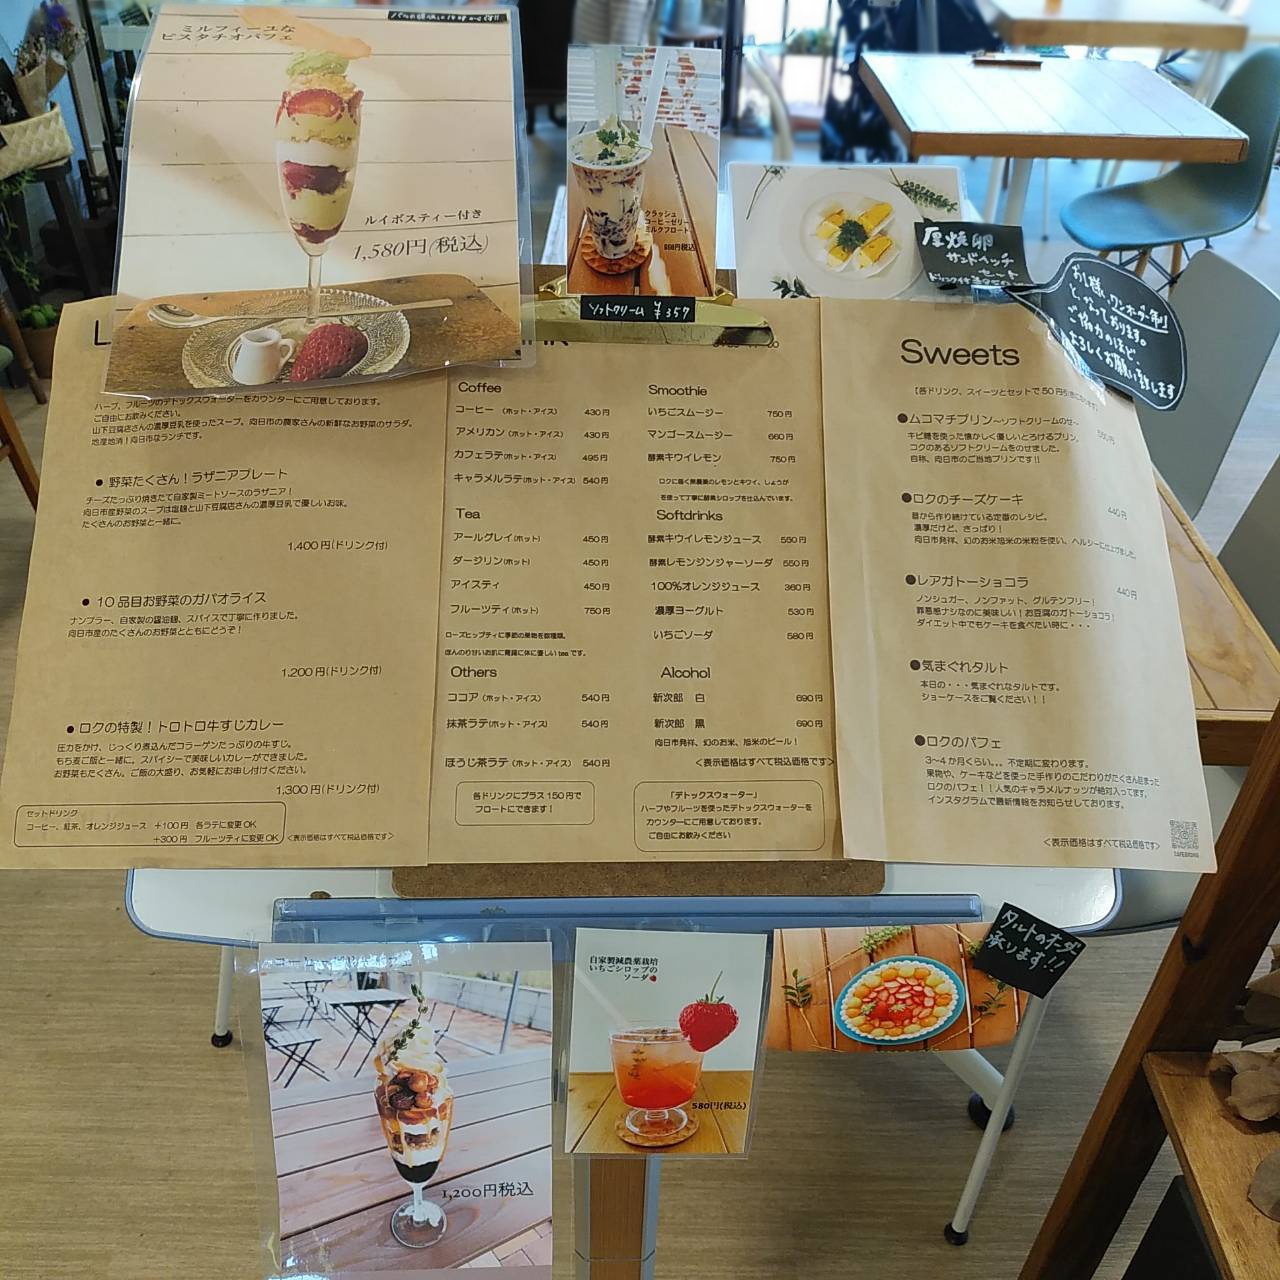 ミルフィーユな
ピスタチオパフェ
ルイボスティー付き
1,580円(税込)
クラッシュ
コーヒーゼリー
ミルクフロート
厚焼卵
サンドイッチ
セット
お1人様、ワンオーダー制
となっております。
ご協力のほど、
よろしくお願い致します
ソフトクリーム ¥357
ハーブ、フルーツのデトックスウォーターをカウンターにご用意しております。
ご自由にお飲みください。
山下豆腐店さんの濃厚豆乳を使ったスープ。向日市の農家さんの新鮮なお野菜のサラダ。
地産地消！向日市なランチです。
● 野菜たくさん！ラザニアプレート
チーズたっぷり焼きたて自家製ミートソースのラザニア！
向日市産野菜のスープは塩麹と山下豆腐店さんの濃厚豆乳で優しいお味。
たくさんのお野菜と一緒に。
1,400円(ドリンク付)
● 10品目お野菜のガパオライス
ナンプラー、自家製の醤油麹、スパイスで丁寧に作りました。
向日市産のたくさんのお野菜とともにどうぞ！
1,200円(ドリンク付)
● ロクの特製！トロトロ牛すじカレー
圧力をかけ、じっくり煮込んだコラーゲンたっぷりの牛すじ。
もち麦ご飯と一緒に。スパイシーで美味しいカレーができました。
お野菜もたくさん。ご飯の大盛り、お気軽にお申し付けください。
1,300円(ドリンク付)
セットドリンク
コーヒー、紅茶、オレンジジュース ＋100円 各ラテに変更OK
＋300円 フルーツティに変更OK
<表示価格はすべて税込価格です>
Coffee
コーヒー (ホット・アイス) 430円
アメリカン (ホット・アイス) 430円
カフェラテ(ホット・アイス) 495円
キャラメルラテ(ホット・アイス) 540円
Tea
アールグレイ(ホット) 450円
ダージリン(ホット) 450円
アイスティ 450円
フルーツティ(ホット) 750円
ローズヒップティに季節の果物を数種類。
ほんのり甘いお肌に胃腸に体に優しいteaです。
Others
ココア (ホット・アイス) 540円
抹茶ラテ(ホット・アイス) 540円
ほうじ茶ラテ (ホット・アイス) 540円
各ドリンクにプラス150円で
フロートにできます！
Smoothie
いちごスムージー 750円
マンゴースムージー 660円
酵素キウイレモン 750円
ロクに届く無農薬のレモンとキウイ、しょうが
を使って丁寧に酵素シロップを仕込んでいます。
Softdrinks
酵素キウイレモンジュース 550円
酵素レモンジンジャーソーダ 550円
100%オレンジジュース 360円
濃厚ヨーグルト 530円
いちごソーダ 580円
Alcohol
新次郎 白 690円
新次郎 黒 690円
向日市発祥、幻のお米、旭米のビール！
<表示価格はすべて税込価格です>
「デトックスウォーター」
ハーブやフルーツを使ったデトックスウォーターを
カウンターにご用意しております。
ご自由にお飲みください
Sweets
●ムコマチプリン～ソフトクリームのせ～
キビ糖を使った懐かしく優しいとろけるプリン。
コクのあるソフトクリームをのせました。
自称、向日市のご当地プリンです!!
●ロクのチーズケーキ
440円
昔から作り続けている定番のレシピ。
濃厚だけど、さっぱり！
向日市発祥、幻のお米旭米の米粉を使い、ヘルシーに仕上げました。
●レアガトーショコラ
440円
ノンシュガー、ノンファット、グルテンフリー！
罪悪感ナシなのに美味しい！お豆腐のガトーショコラ！
ダイエット中でもケーキを食べたい時に・・・
●気まぐれタルト
本日の・・・気まぐれなタルトです。
ショーケースをご覧ください！！
●ロクのパフェ
3～4か月くらい。。。不定期に変わります。
果物や、ケーキなどを使った手作りのこだわりがたくさん詰まった
ロクのパフェ！！人気のキャラメルナッツが絶対入ってます。
インスタグラムで最新情報をお知らせしております。
<表示価格はすべて税込価格です>
1,200円税込
自家製減農薬栽培
いちごシロップの
ソーダ
580円(税込)
タルトのオーダー
承ります!!